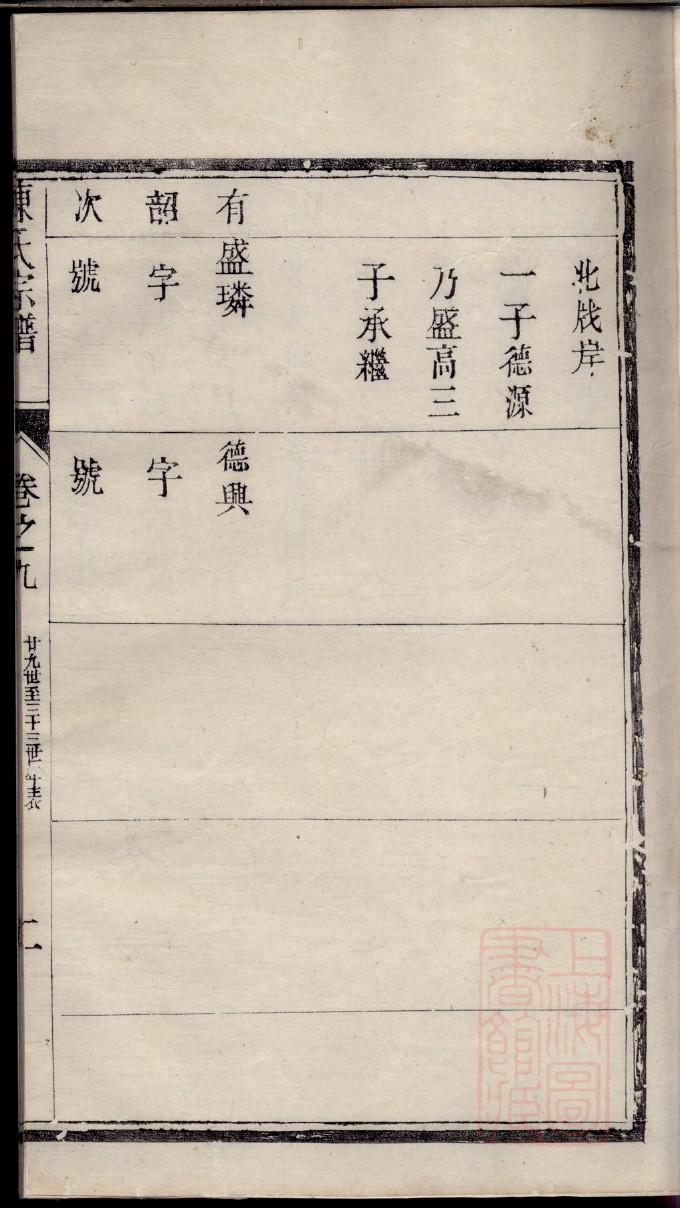 北戗岸
一子德源
乃盛高三
子承繼
有
盛璘
德興
韶
字
字
次
號
號
陳氏宗譜
卷之九
廿九世至三十三世
二
上海圖
書館藏